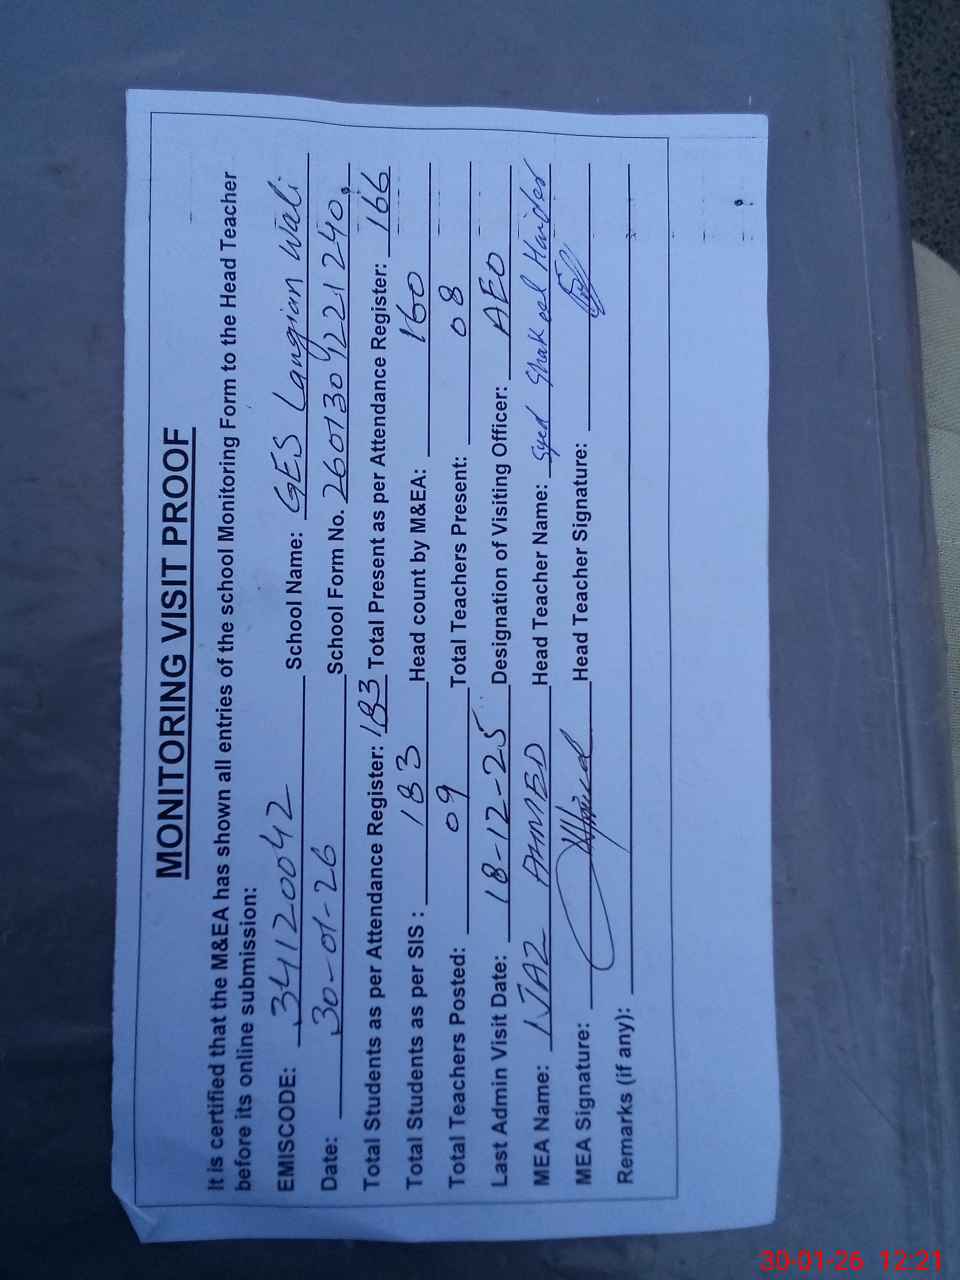 MONITORING VISIT PROOF
It is certified that the M&EA has shown all entries of the school Monitoring Form to the Head Teacher
before its online submission:
EMISCODE: 34120042 School Name: GES Langian Wali
Date: 30-01-26 School Form No. 2601309221240
Total Students as per Attendance Register: 183 Total Present as per Attendance Register: 166
Total Students as per SIS : 183 Head count by M&EA: 160
Total Teachers Posted: 09 Total Teachers Present: 08
Last Admin Visit Date: 18-12-25 Designation of Visiting Officer: AEO
MEA Name: IJAZ AHMED Head Teacher Name: Syed Shakeel Haider
MEA Signature: Head Teacher Signature:
Remarks (if any):
30-01-26 12:21